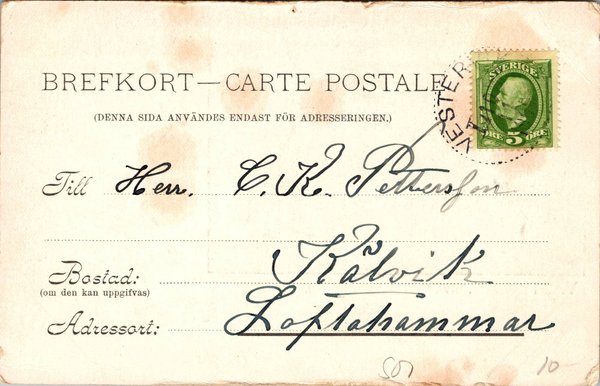 BREFKORT—CARTE POSTALE
(DENNA SIDA ANVÄNDES ENDAST FÖR ADRESSERINGEN.)
SVERIGE
5
ÖRE ÖRE
VESTER
Till Herr. C. K. Pettersson
Kålvik
Bostad:
(om den kan uppgifvas)
Adressort: Loftahammar
501
10